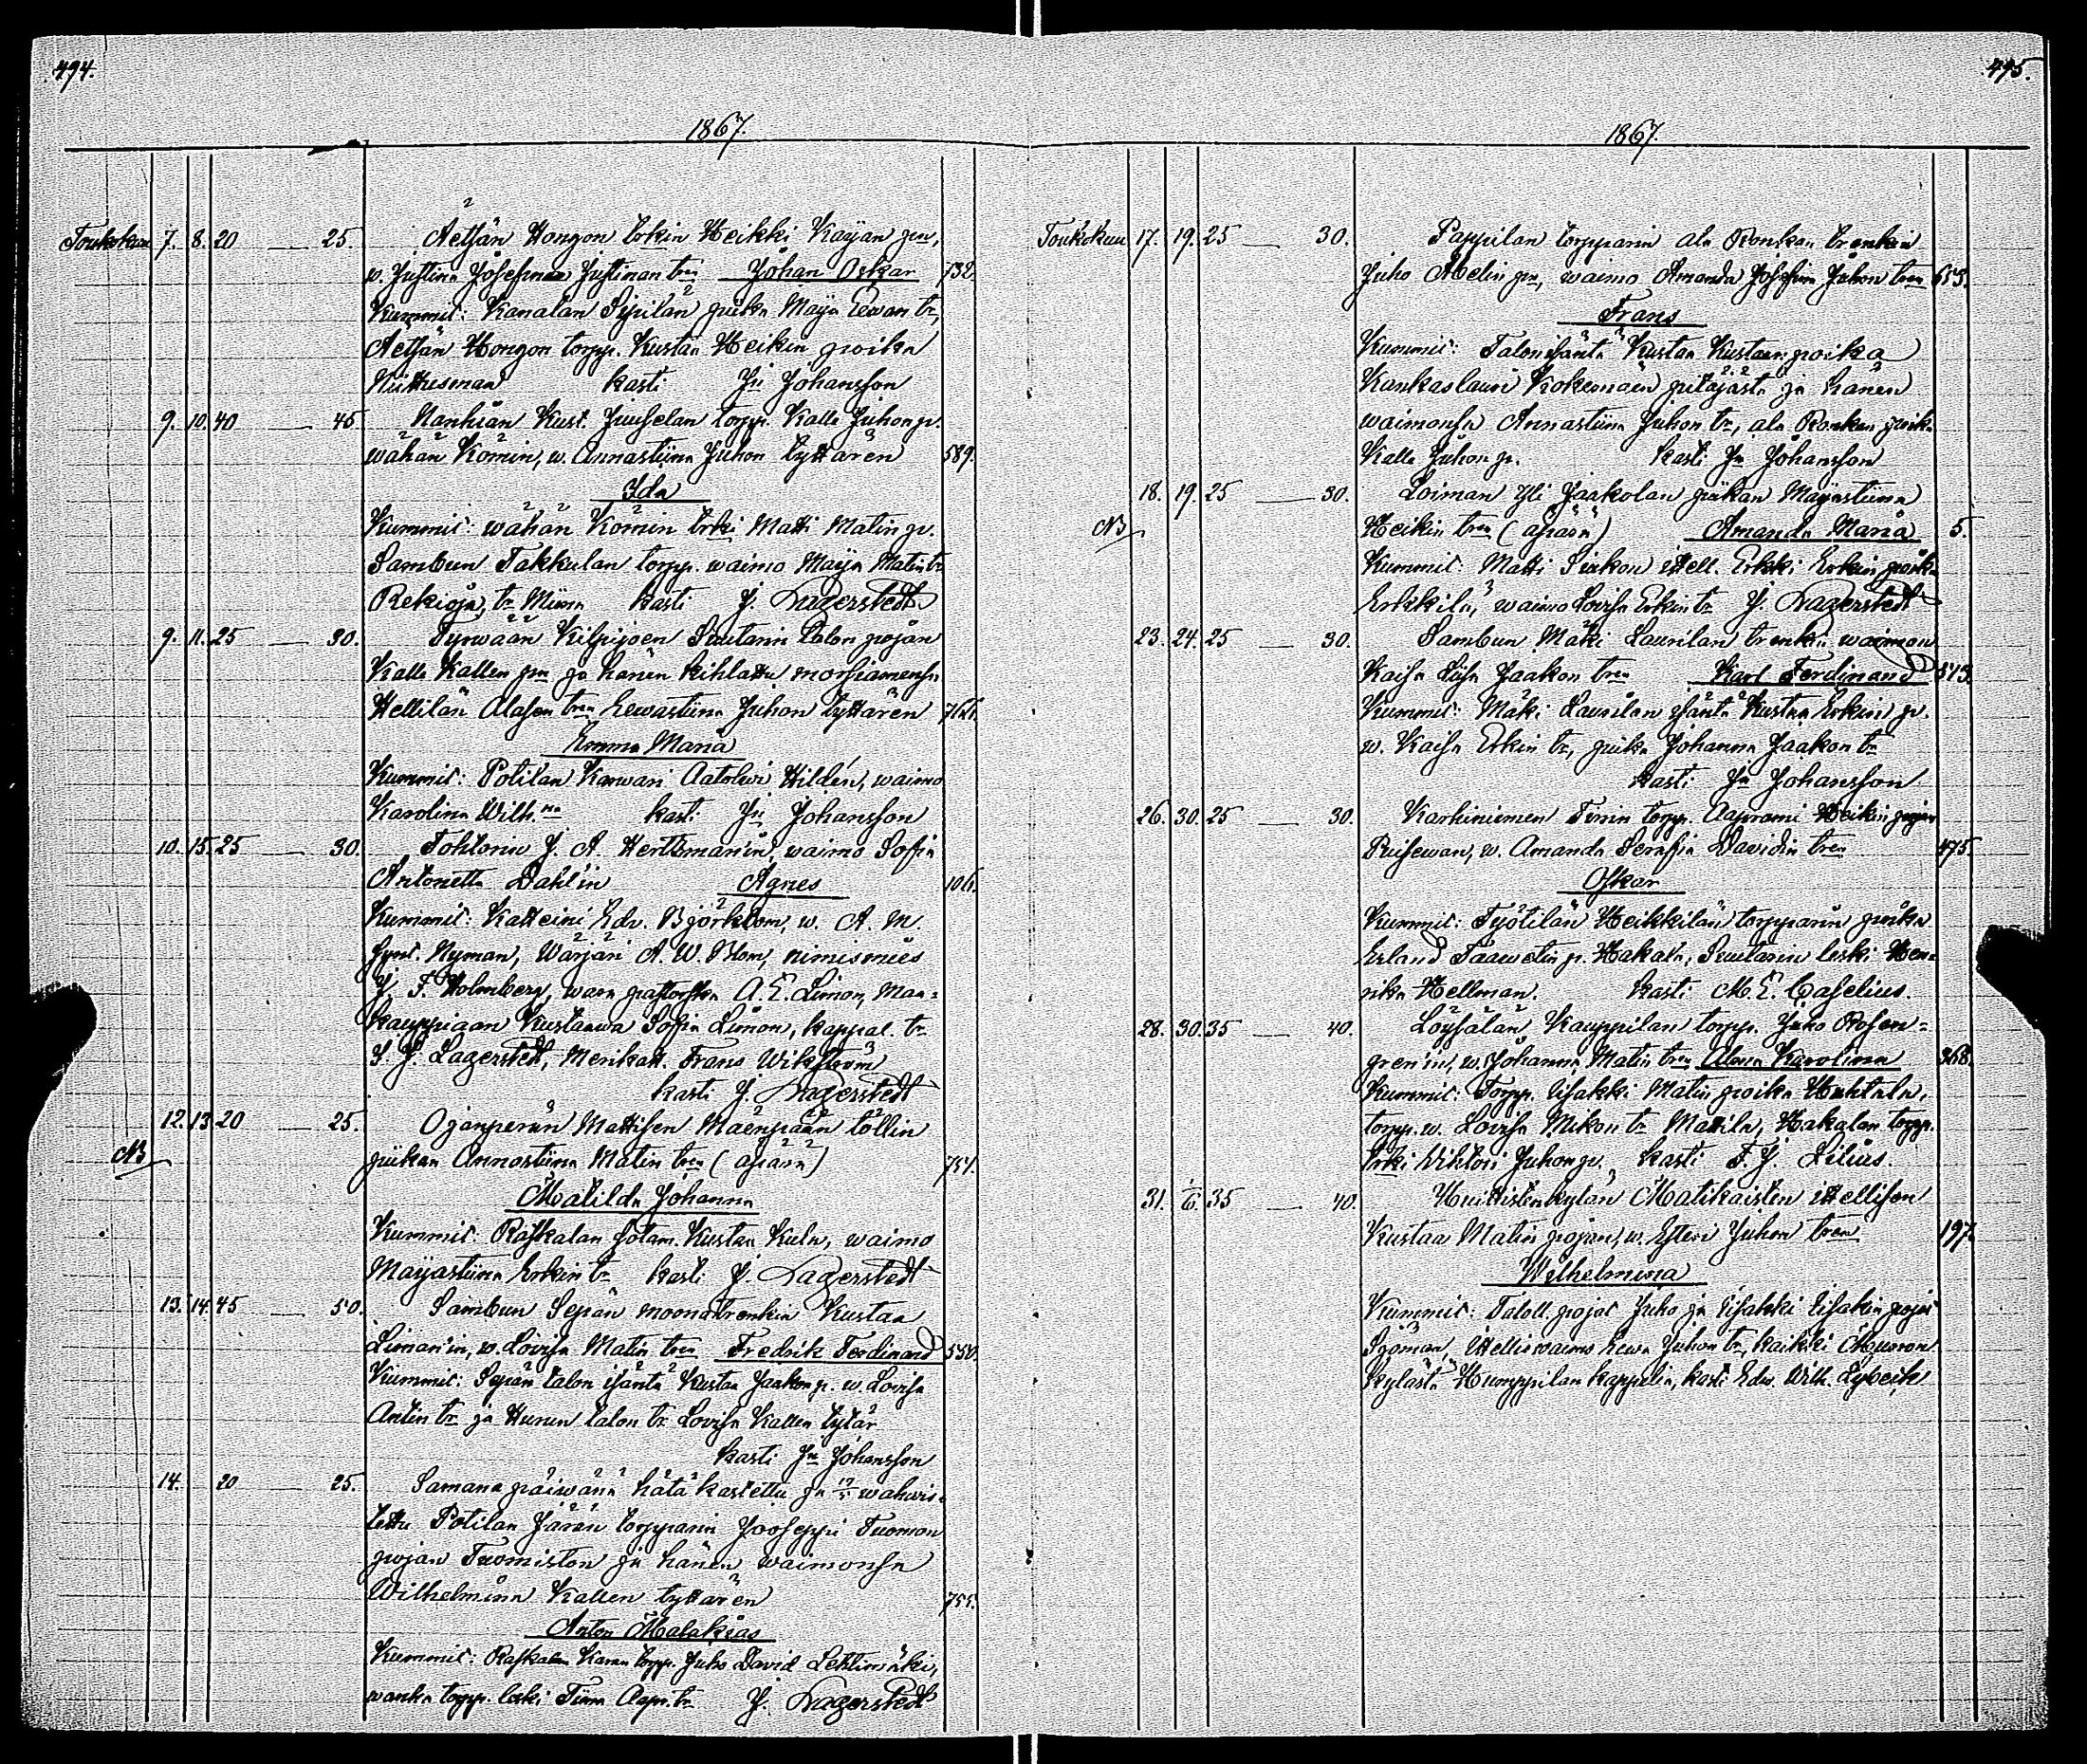 494.
1867.
Toukokuu 7. 8. 20 — 25. Äetsän Hongon Erkin Heikki Kayan pn,
w. Justina Josefina Justinan tren Johan Oskar 732.
Kummit: Kanalan Sipilän piika Maija Eewan tr,
Äetsän Hongon torpp. Kustan Heikin poika
kasti Johansson
9. 10. 40 — 45 Nanhian Kust. Juuselan torpp. Kalle Juhon p.
wähän Kömin, w. Annastiina Juhon tyttären 589.
Ida
Kummit: wähän Kömin Erki Matti Matin p.
Sambun Takkulan torpp. waimo Maija Matin tr
Rekioja, tr Miina kasti J. Lagerstedt
9. 11. 25 — 30. Tyrwään Kilpijoen Suutarin talon pojan
Kalle Kallen pn ja hänen kihlattu morsiamensa
Hellilän Alasen tren Eewastiina Juhon tyttären
Emma Maria
Kummit: Potilan Karwari Aatolwi Hildén, waimo
Karolina Wilh.na kasti Johansson
10. 15. 25 — 30. Tohtorin J. A. Hertzman'in, waimo Sofia
Antonetta Dahlin Agnes 106.
Kummit: Katteini Edv. Björklom, w. A. M.
Nyman, Wärjäri A. W. Blom, nimismies
J. F. Holmberg, wara pastorska A. E. Limon, Maa-
kauppiaan Kustaawa Sofia Limon, kappal. tr
S. J. Lagerstedt, Merikatt. Frans Wikström
kasti J. Lagerstedt
12. 13 20 — 25. Ojanperän Mattisen Mäenpään töllin
NB piikan Annastiina Matin tren (äpärä) 754.
Matilda Johanna
Kummit: Raskalan sotam. Kustaa Kula, waimo
Maijastiina Erkin tr kasti J. Lagerstedt
13. 14. 45 — 50. Sambun Sepän moonatrenkin Kustaa
Liman'in, w. Lovisa Matin tren Fredrik Ferdinand 554.
Kummit: Sepän talon isäntä Kustaa Jaakon p. w. Lovisa
Antin tr ja Hurun talon tr Lovisa Kallen tytär
kasti Jn Johansson
14. 20 — 25. Samana päiwänä hätä kastettu ja wahwis-
tettu Potilan Jaran torpparin Jooseppi Tuomon
pojan Tuomiston ja hänen waimonsa
Wilhelmiina Kallen tyttären 755.
Anton Malakias
Kummit: Raskalan Karan torpp. Juho David Lehtimäki,
wanha torpp. leski Tiina Aapr. tr J. Lagerstedt
495.
1867.
Toukokuu 17. 19. 25 — 30. Pappilan torpparin ala Ronkan trenkin
Juho Abelin pn, waimo Amanda Josefina Juhon tren 653.
Frans
Kummit: Talonisäntä Kustaa Kustaan poika
Kankaslauri Kokemäen pitäjästä ja hänen
waimonsa Annastiina Juhon tr, ala Ronkan poika
Kalle Juhon p. kasti Jn Johansson
18. 19. 25 — 30. Loiman yli Jaakolan piikan Maijastiina
NB Heikin tren (äpärä) Amanda Maria 5.
Kummit: Matti Sirkon itsell. Erkki Erkin poika
Erkkilä, waimo Lovisa Erkin tr J. Lagerstedt
23. 24. 25 — 30. Sambun Mäki Laurilan trenki waimon
Kaisa Liisa Jaakon tren Karl Ferdinand 513.
Kummit: Mäki Laurilan isäntä Kustaa Erkin p.
w. Kaisa Erkin tr, piika Johanna Jaakon tr
kasti Jn Johansson
26. 30. 25 — 30. Karhiniemen Ferin torpp. Aaprami Heikin pojan
w. Amanda Serafia Davidin tren 475.
Oskar
Kummit: Työtilän Heikkilän torpparin poika
Erland Taawetin p. Hakala, Suutarin leski Hen-
rika Hellman. kasti M. E. Caselius.
28. 30. 35 — 40. Löysälän Kauppilan torpp. Juho Rosen-
gren'in, w. Johanna Matin tren Alma Karolina 368.
Kummit: Torpp. Iisakki Matin poika Huhtala,
torpp. w. Lovisa Mikon tr Mattila, Hakalan torpp.
Erki Wihtori Juhon p. kasti F. J. Lilius.
31. 1/6. 35 — 40. Huittistenkylän Matikaisten itsellisen
Kustaa Matin pojan, w. Esteri Juhon tren 197.
Wilhelmina
Kummit: Taloll. pojat Juho ja Iisakki Iisakin pojat
Sjöman, Itsellis waimo Eewa Juhon tr, kaikki Murron
kylästä Humppilan kappelia, kasti Edw. Wilh. Lybeck